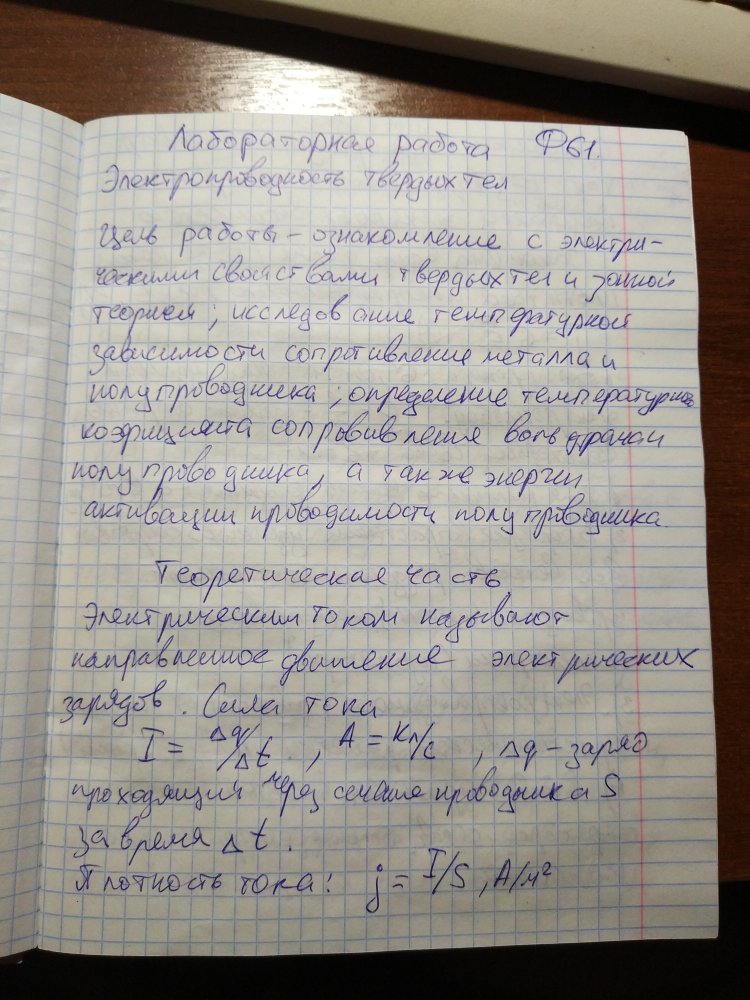 Лабораторная работа Ф61.
Электропроводность твёрдых тел
Цель работы – ознакомление с электри-
ческими свойствами твердых тел и зонной
теорией; исследование температурной
зависимости сопротивление металла и
полупроводника; определение температурного
сопротивления
полупроводника, а также энергии
активации проводимости полупроводника.
Теоретическая часть
Электрическим током называют
направленное движение электрических
зарядов. Сила тока
I = Δq/Δt, A = Кл/с, Δq – заряд
проходящий через сечение проводника S
за время Δt.
Плотность тока: j = I/S, А/м²